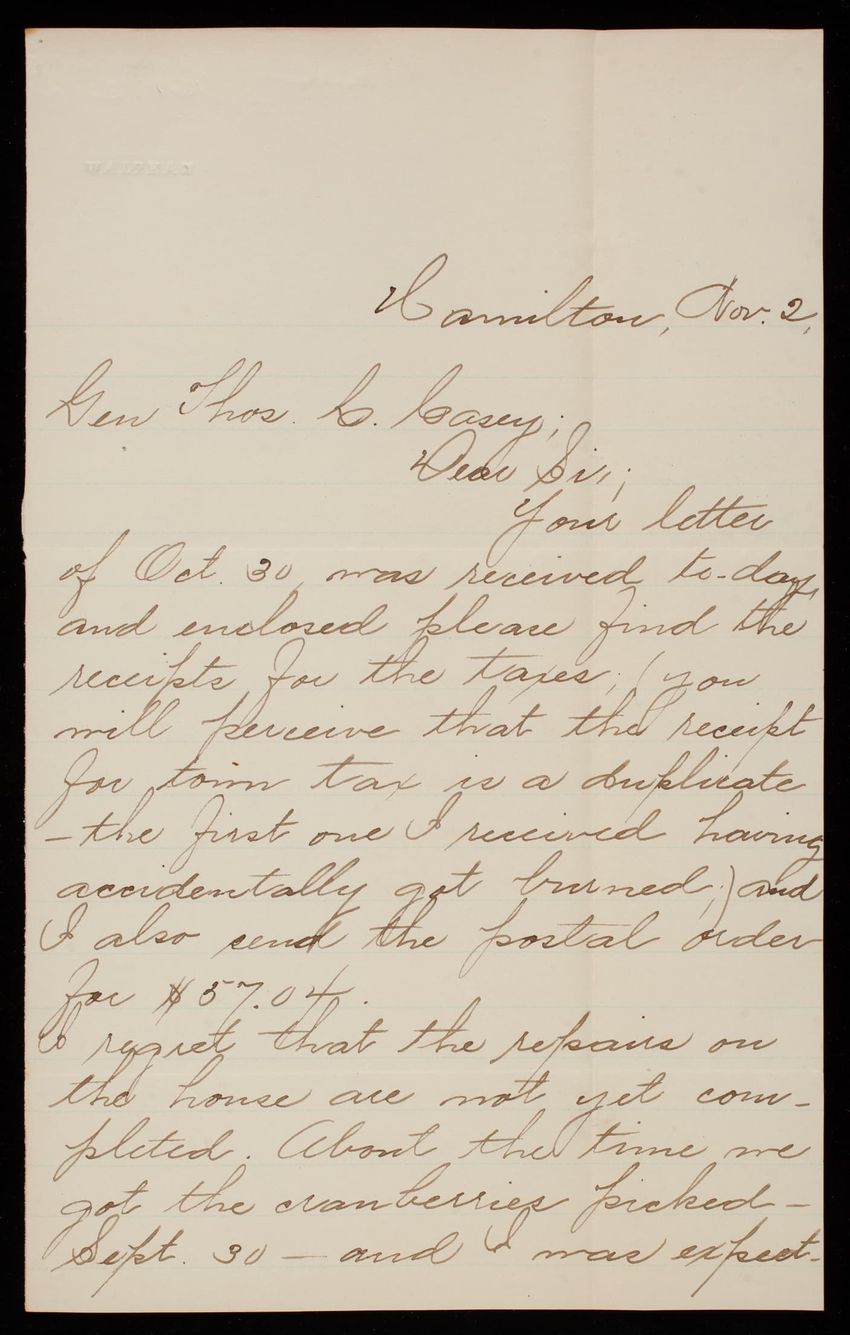 Hamilton, Nov. 2,
Gen Thos. L. Casey;
Dear Sir;
Your letter
of Oct. 30, was received to-day,
and enclosed please find the
receipts for the taxes; (you
will perceive that the receipt
for town tax is a duplicate
- the first one I received having
accidentally got burned;) and
I also send the postal order
for $57.04.
I regret that the repairs on
the house are not yet com-
pleted. About the time we
got the cranberries picked -
Sept. 30 - and I was expect-